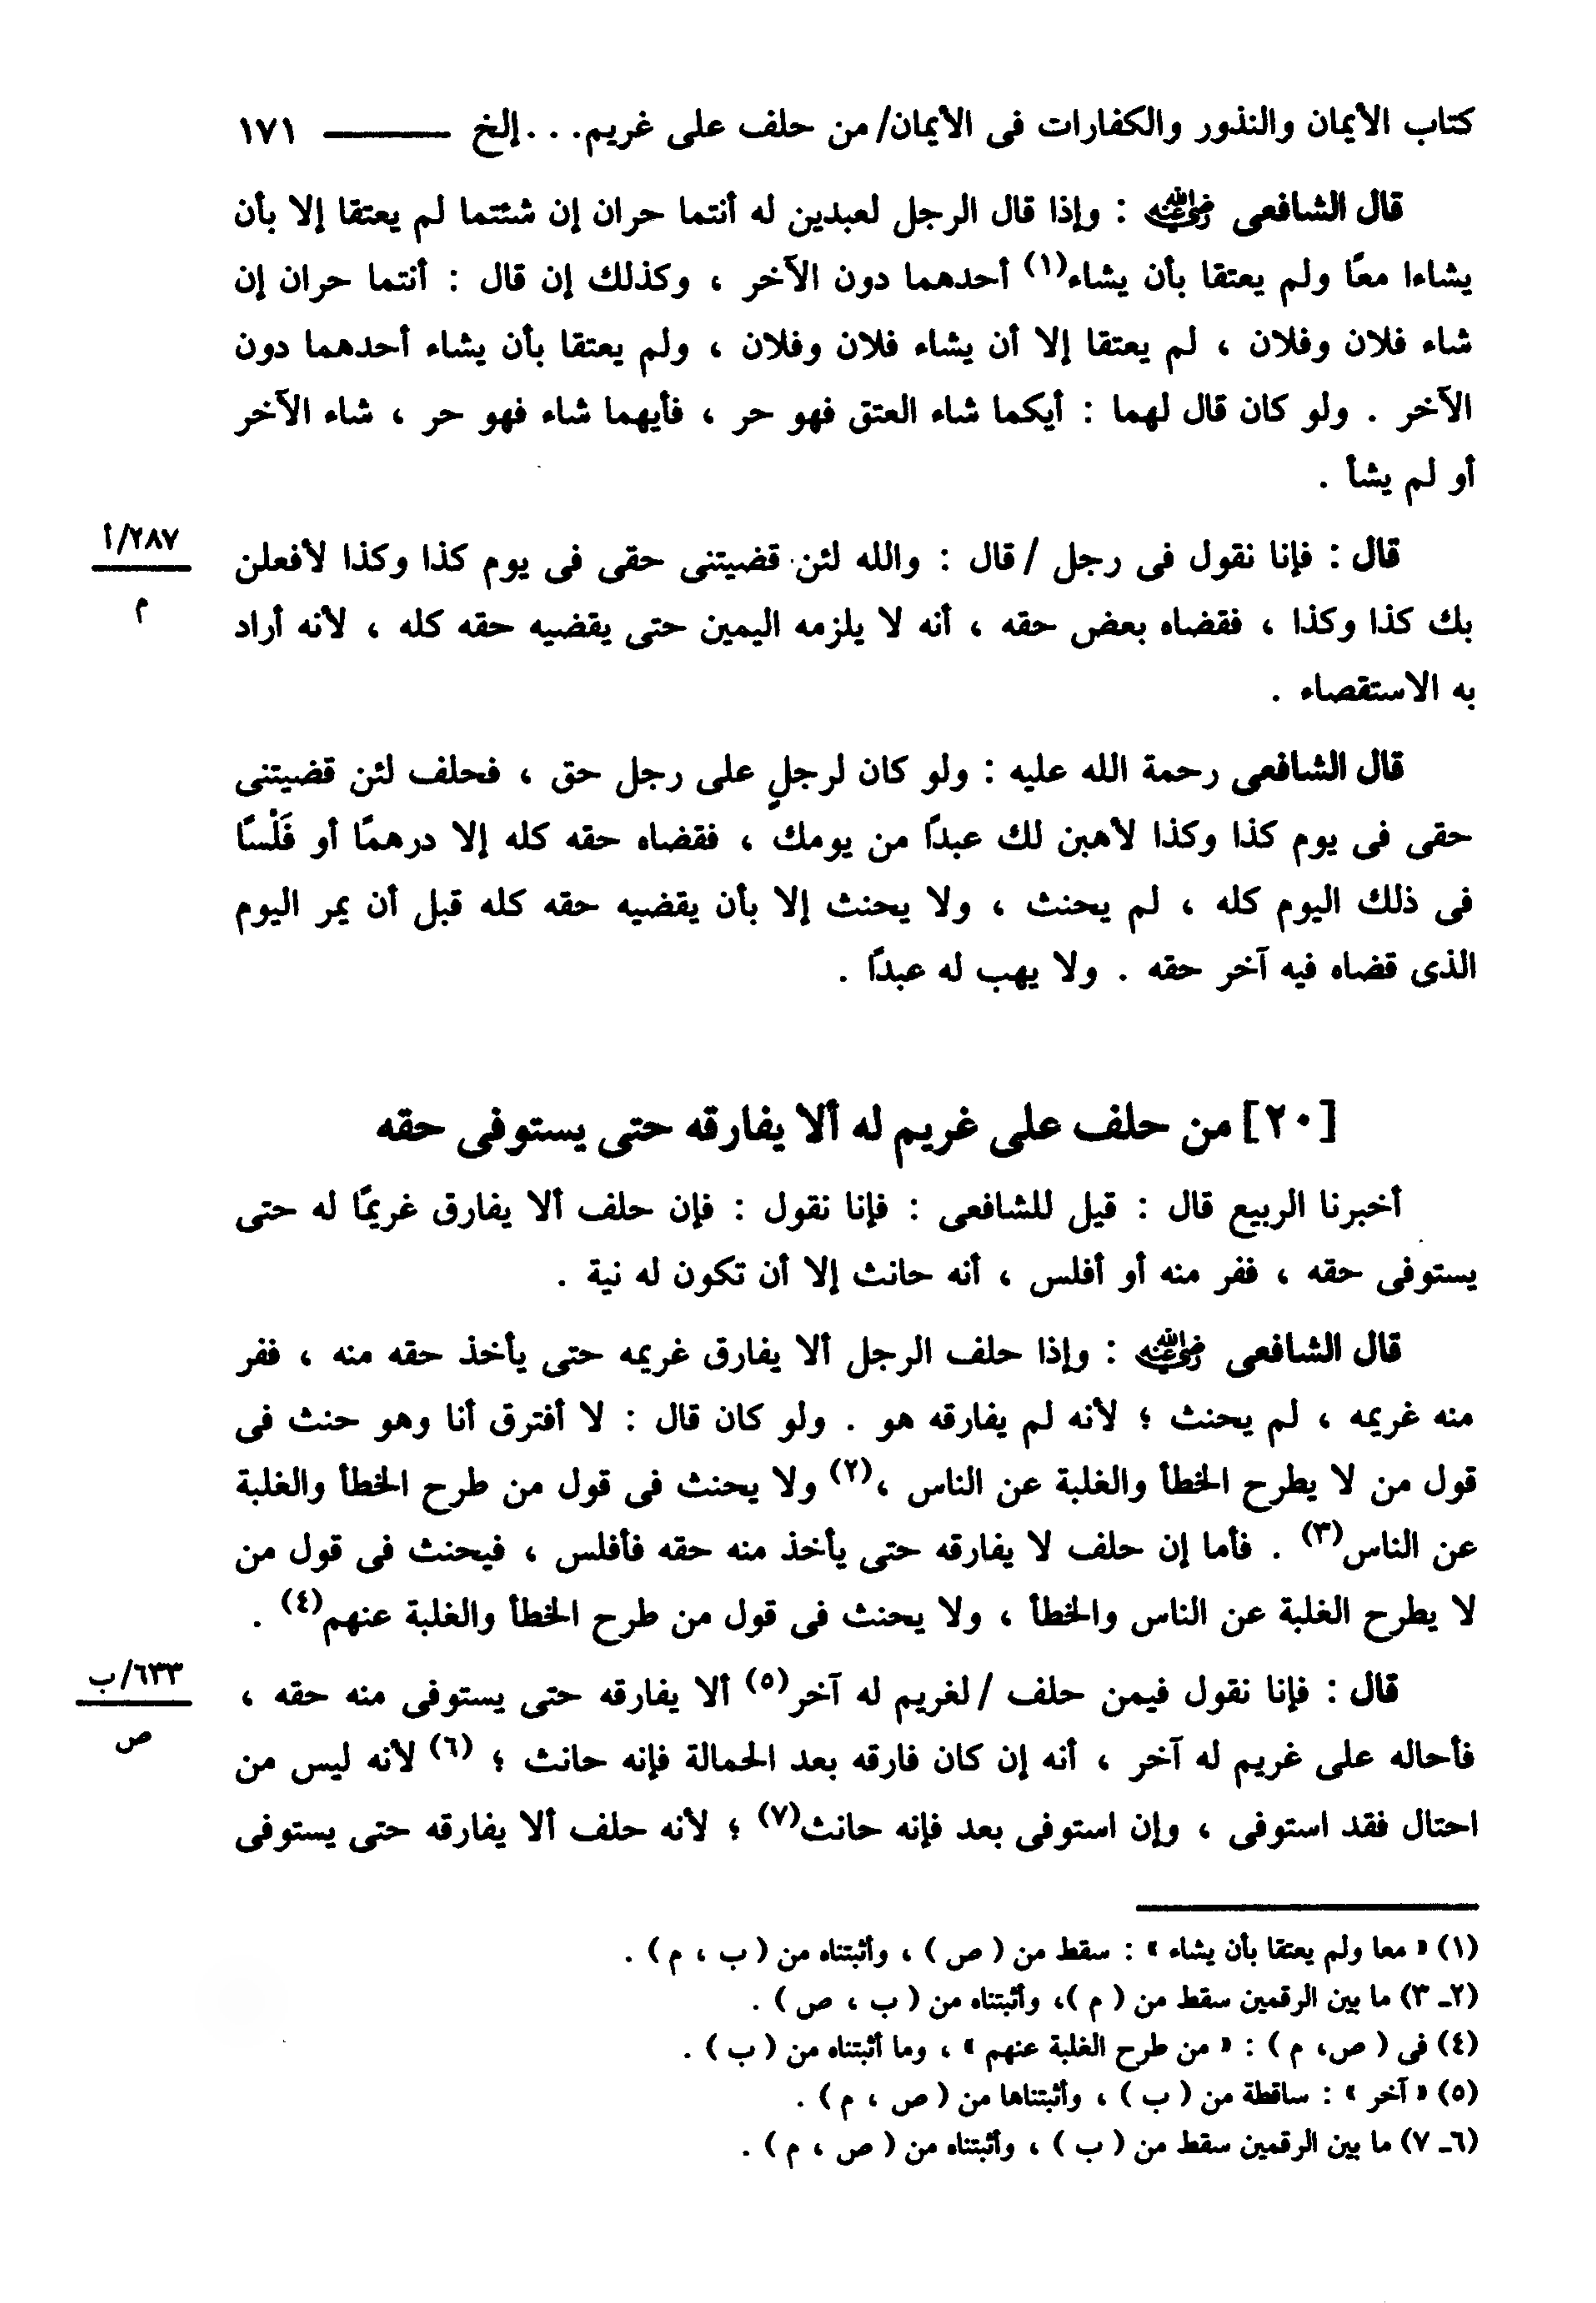 كتاب الأيمان والنذور والكفارات فى الأيمان/ من حلف على غريم. . .إلخ ــــــــــ ١٧١
قال الشافعى رضي الله عنه : وإذا قال الرجل لعبدين له أنتما حران إن شئتما لم يعتقا إلا بأن
يشاءا معًا ولم يعتقا بأن يشاء(١) أحدهما دون الآخر ، وكذلك إن قال : أنتما حران إن
شاء فلان وفلان ، لم يعتقا إلا أن يشاء فلان وفلان ، ولم يعتقا بأن يشاء أحدهما دون
الآخر . ولو كان قال لهما : أيكما شاء العتق فهو حر ، فأيهما شاء فهو حر ، شاء الآخر
أو لم يشأ .
قال : فإنا نقول فى رجل / قال : والله لئن قضيتنى حقى فى يوم كذا وكذا لأفعلن
٢٨٧/أ
م
بك كذا وكذا ، فقضاه بعض حقه ، أنه لا يلزمه اليمين حتى يقضيه حقه كله ، لأنه أراد
به الاستقصاء .
قال الشافعى رحمة الله عليه : ولو كان لرجلٍ على رجل حق ، فحلف لئن قضيتنى
حقى فى يوم كذا وكذا لأهبن لك عبدًا من يومك ، فقضاه حقه كله إلا درهمًا أو فَلْسًا
فى ذلك اليوم كله ، لم يحنث ، ولا يحنث إلا بأن يقضيه حقه كله قبل أن يمر اليوم
الذى قضاه فيه آخر حقه . ولا يهب له عبدًا .
[٢٠] من حلف على غريم له ألا يفارقه حتى يستوفى حقه
أخبرنا الربيع قال : قيل للشافعى : فإنا نقول : فإن حلف ألا يفارق غريمًا له حتى
يستوفى حقه ، ففر منه أو أفلس ، أنه حانث إلا أن تكون له نية .
قال الشافعى رضي الله عنه : وإذا حلف الرجل ألا يفارق غريمه حتى يأخذ حقه منه ، ففر
منه غريمه ، لم يحنث ؛ لأنه لم يفارقه هو . ولو كان قال : لا أفترق أنا وهو حنث فى
قول من لا يطرح الخطأ والغلبة عن الناس ،(٢) ولا يحنث فى قول من طرح الخطأ والغلبة
عن الناس(٣) . فأما إن حلف لا يفارقه حتى يأخذ منه حقه فأفلس ، فيحنث فى قول من
لا يطرح الغلبة عن الناس والخطأ ، ولا يحنث فى قول من طرح الخطأ والغلبة عنهم(٤) .
قال : فإنا نقول فيمن حلف / لغريم له آخر(٥) ألا يفارقه حتى يستوفى منه حقه ،
٦٣٣/ب
ص
فأحاله على غريم له آخر ، أنه إن كان فارقه بعد الحمالة فإنه حانث ؛ (٦) لأنه ليس من
احتال فقد استوفى ، وإن استوفى بعد فإنه حانث(٧) ؛ لأنه حلف ألا يفارقه حتى يستوفى
(١) « معا ولم يعتقا بأن يشاء » : سقط من ( ص ) ، وأثبتناه من ( ب ، م ) .
(٢ـ ٣) ما بين الرقمين سقط من ( م )، وأثبتناه من ( ب ، ص ) .
(٤) فى ( ص، م ) : « من طرح الغلبة عنهم » ، وما أثبتناه من ( ب ) .
(٥) « آخر » : ساقطة من ( ب ) ، وأثبتناها من ( ص ، م ) .
(٦ـ ٧) ما بين الرقمين سقط من ( ب ) ، وأثبتناه من ( ص ، م ) .